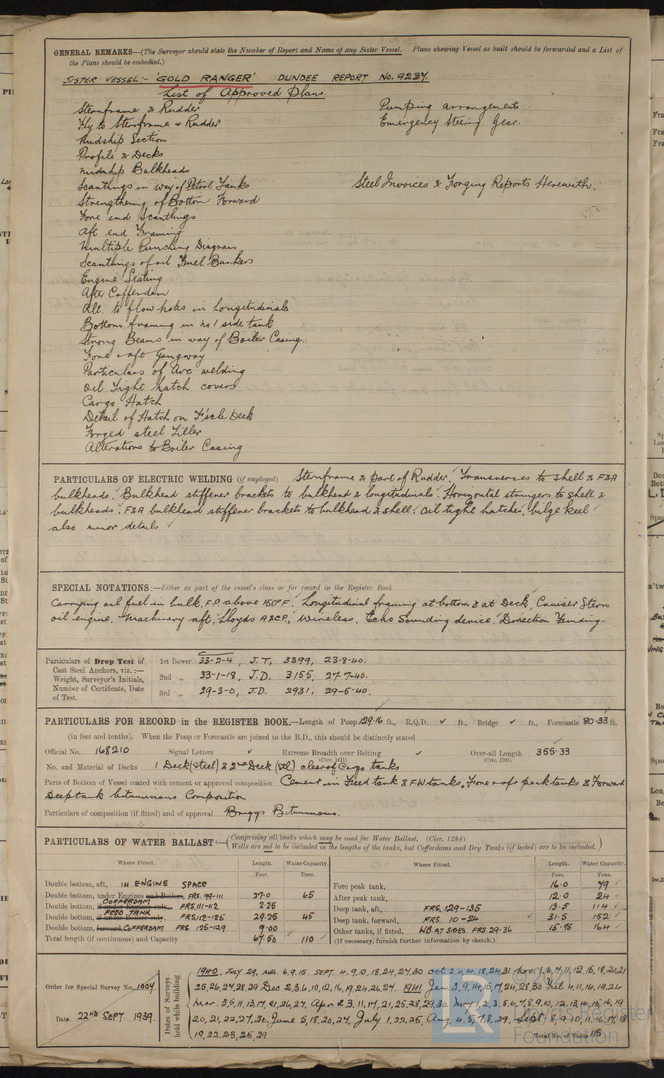 GENERAL REMARKS—(The Surveyor should state the Number of Report and Name of any Sister Vessel. Plans shewing Vessel as built should be forwarded and a List of
the Plans should be embodied.)
SISTER VESSEL:- 'GOLD RANGER' DUNDEE REPORT No. 9237.
List of Approved Plans.
Sternframe & Rudder
Pumping arrangements
Emergency Steering Gear.
Midship Section
Profile & Decks
Midship Bulkheads
Scantlings in way of Petrol Tanks
Steel Invoices & Forging Reports Herewith.
Strengthening of Bottom Forward
Fore end Scantlings
Aft end Framing
Multiple Punching Diagram
Scantlings of oil Fuel Bunkers
Engine Seating
After Cofferdam
Alt. to flow holes in Longitudinals
Bottom framing in No 1 side tank
Strong Beams in way of Boiler Casing.
Fore & aft Gangway
Particulars of Arc welding
Oil Tight hatch covers
Cargo Hatch
Detail of Hatch on F'xcle Deck
Forged steel Tiller
Alterations to Boiler Casing
PARTICULARS OF ELECTRIC WELDING (if employed) Sternframe & part of Rudder, Transverses to shell & F&A
bulkheads. Bulkhead stiffener brackets to bulkhead & longitudinals. Horizontal stringers to shell &
bulkheads. F&A bulkhead stiffener brackets to bulkhead & shell. Oil tight hatches, bilge keel
also minor details
SPECIAL NOTATIONS:—Either as part of the vessel's class or for record in the Register Book
Carrying oil fuel in bulk, F.P. above 150°F. Longitudinal framing at bottom & at Deck, Cruiser Stern
oil engine. Machinery aft, Lloyds A&CP, Wireless, Echo Sounding device, Direction Finding.
Particulars of Drop Test of
Cast Steel Anchors, viz. :—
Weight, Surveyor's Initials,
Number of Certificate, Date
of Test.
1st Bower 33-2-4, J.T., 3399, 23-8-40.
2nd „ 33-1-18, J.D. 3155, 27-7-40.
3rd „ 29-3-0, J.D. 2931, 29-6-40.
PARTICULARS FOR RECORD in the REGISTER BOOK.—Length of Poop 129.16 ft., R.Q.D. ft., Bridge ft., Forecastle 80.33 ft.
(in feet and tenths). When the Poop or Forecastle are joined to the B.D., this should be distinctly stated
Official No. 168210 Signal Letters Extreme Breadth over Belting (Circ. 1611) Over-all Length (Circ. 1703) 355.33
No. and Material of Decks 1 Deck (steel) & 2nd Deck (stl) clear of Cargo tanks
Parts of Bottom of Vessel coated with cement or approved composition Cement in Feed tank & F.W tanks, Fore & aft peak tanks & Forward
Deep tank bituminous Composition
Particulars of composition (if fitted) and of approval Briggs Bituminous.
PARTICULARS OF WATER BALLAST:—(Comprising all tanks which may be used for Water Ballast. (Circ. 1284)
Wells are not to be included in the lengths of the tanks, but Cofferdams and Dry Tanks (if tested) are to be included.)
Where Fitted. Length. Feet. Water Capacity. Tons.
Double bottom, aft, IN ENGINE SPACE
Double bottom, under Engines and Boilers, FRS. 99-111 27.0 65
Double bottom, COFFERDAM FRS. 111-112 2.25
Double bottom, FEED TANK FRS. 112-125 29.25 45
Double bottom, forward, COFFERDAM FRS. 125-129 9.00
Total length (if continuous) and Capacity 67.50 110
Where Fitted. Length. Feet. Water Capacity. Tons.
Fore peak tank, 16.0 79
After peak tank, 12.0 24
Deep tank, aft, FRS. 129-135 13.5 114
Deep tank, forward, FRS. 10-24 31.5 152
Other tanks, if fitted, WB AT SIDES FRS. 29-36 15.75 164
(If necessary, furnish further information by sketch.)
Order for Special Survey No. 1004
Date 22nd SEPT 1939.
Dates of Surveys held while building
1940, July 29, Aug 6,9,15 SEPT 4,9,10,18,24,27,30 Oct
1941 Jan
19,22,28,25,29
Total No. of Visits 115
© 2020
Lloyd's Register
Foundation